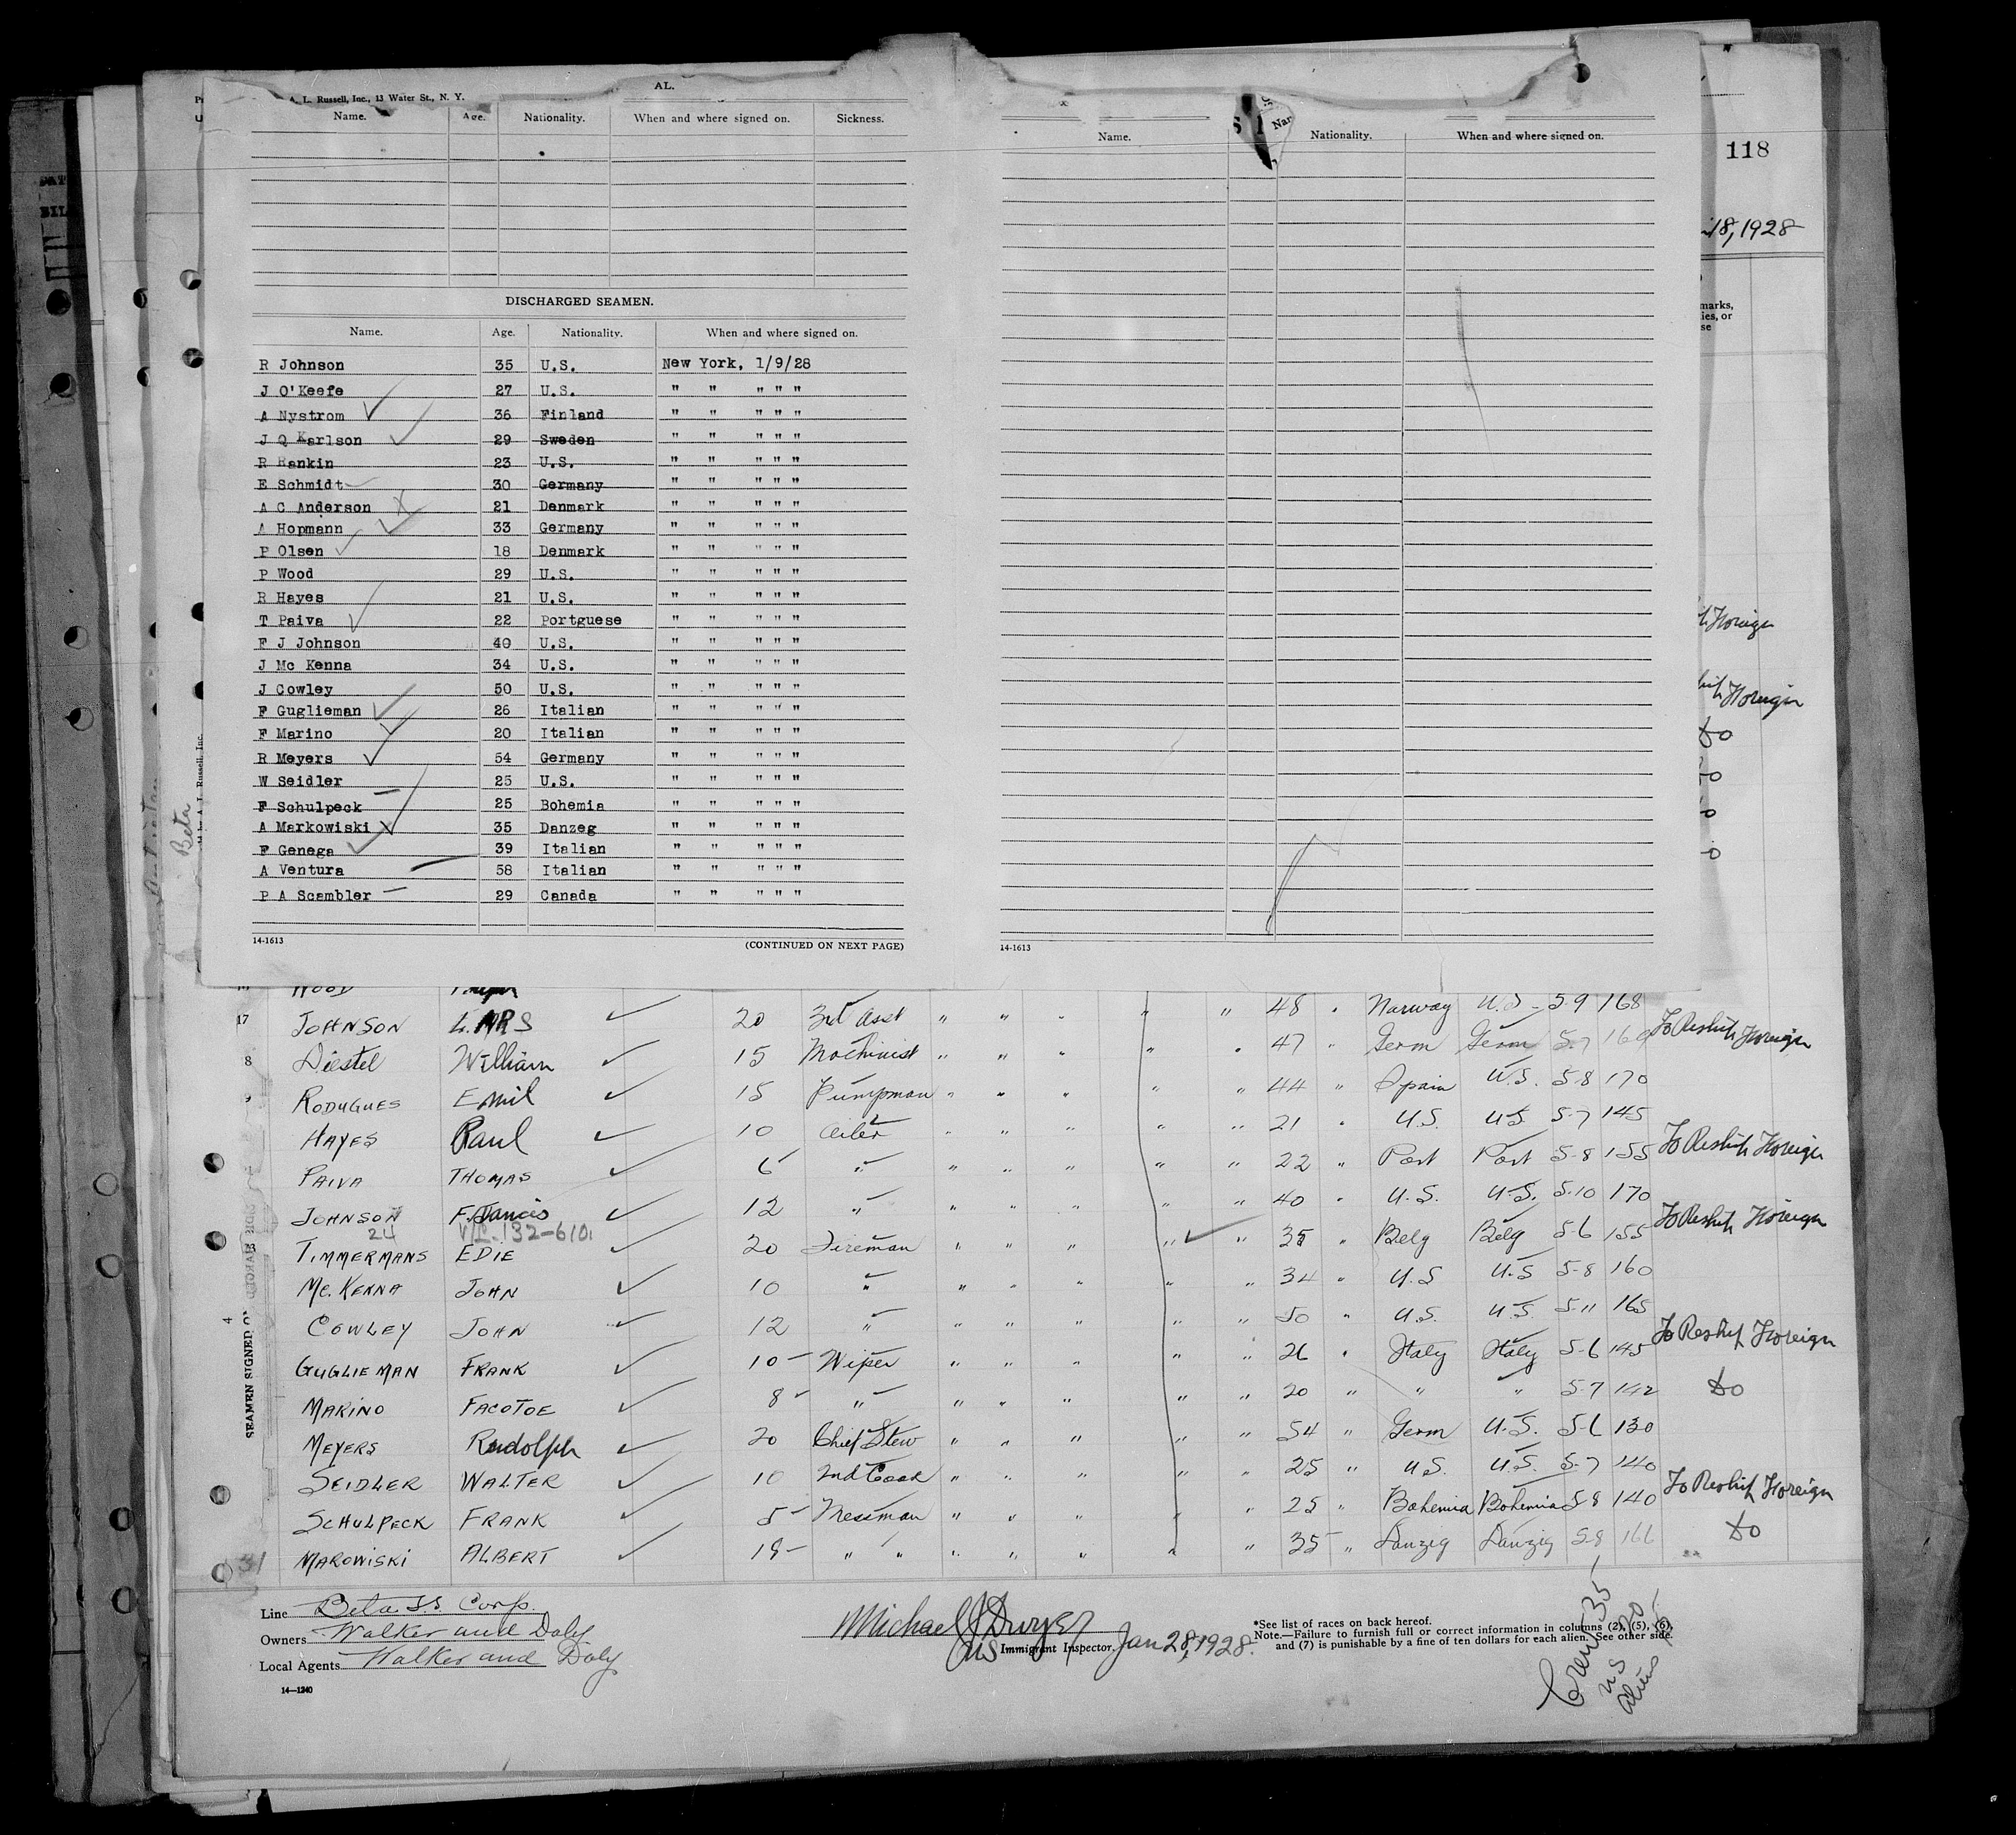 A. L. Russell, Inc., 13 Water St., N. Y.
AL.
Name. Age. Nationality. When and where signed on. Sickness.
Name. Nationality. When and where signed on.
118
18, 1928
DISCHARGED SEAMEN.
Name. Age. Nationality. When and where signed on.
R Johnson 35 U.S. New York, 1/9/28
J O'Keefe 27 U.S. " " " " "
A Nystrom 36 Finland " " " " "
J Q Karlson 29 Sweden " " " " "
R Rankin 23 U.S. " " " " "
E Schmidt 30 Germany " " " " "
A C Anderson 21 Denmark " " " " "
A Hopmann 33 Germany " " " " "
P Olsen 18 Denmark " " " " "
P Wood 29 U.S. " " " " "
R Hayes 21 U.S. " " " " "
T Paiva 22 Portguese " " " " "
F J Johnson 40 U.S. " " " " "
J Mc Kenna 34 U.S. " " " " "
J Cowley 50 U.S. " " " " "
F Guglieman 26 Italian " " " " "
F Marino 20 Italian " " " " "
R Meyers 54 Germany " " " " "
W Seidler 25 U.S. " " " " "
F Schulpeck 25 Bohemia " " " " "
A Markowiski 35 Danzeg " " " " "
F Genega 39 Italian " " " " "
A Ventura 58 Italian " " " " "
P A Scambler 29 Canada " " " " "
14-1613 (CONTINUED ON NEXT PAGE)
14-1613
Foreign
Foreign
do
Beta
WOOD
17 JOHNSON LARS 20 3rd Asst " " " " " 48 " Norway U.S. 5-9 168
8 Diestel William 15 Machinist " " " " " 47 " Germ Germ 5-7 160 To Reship Foreign
9 RODUGUES EMil 15 Pumpman " " " " " 44 " Spain U.S. 5-8 170
HAYES Paul 10 Oiler " " " " " 21 " U.S. U.S. 5-7 145
PAIVA THOMAS 6 " " " " " " 22 " Port Port 5-8 155 To Reship Foreign
JOHNSON F. Francis 12 " " " " " " 40 " U.S. U.S. 5-10 170
24 V/L-132-610
TIMMERMANS EDIE 20 Fireman " " " " " 35 " Belg Belg 5-6 155 To Reship Foreign
Mc. KENNA JOHN 10 " " " " " " 34 " U.S U.S 5-8 160
COWLEY JOHN 12 " " " " " " 50 " U.S. U.S. 5-11 165
GUGLIEMAN FRANK 10 Wiper " " " " " 26 " Italy Italy 5-6 145 To Reship Foreign
MARINO FACOTOE 8 " " " " " " 20 " " " 5-7 142 do
MEYERS Rudolph 20 Chief Stew " " " " " 54 " Germ U.S. 5-6 130
SEIDLER WALTER 10 2nd Cook " " " " " 25 " U.S. U.S. 5-7 140
SCHULPECK FRANK 5 Messman " " " " " 25 " Bohemia Bohemia 5-8 140 To Reship Foreign
31 MAROWISKI ALBERT 18 " " " " " " " 35 " Danzig Danzig 5-8 166 do
SEAMEN SIGNED
Line Beta S.S. Corp.
Owners Walker and Daly
Local Agents Walker and Daly
14—1240
Michael J Dwyer
US Immigrant Inspector. Jan 28, 1928.
*See list of races on back hereof.
Note.—Failure to furnish full or correct information in columns (2), (5), (6),
and (7) is punishable by a fine of ten dollars for each alien. See other side.
Crew 35
US 20
Aliens 15